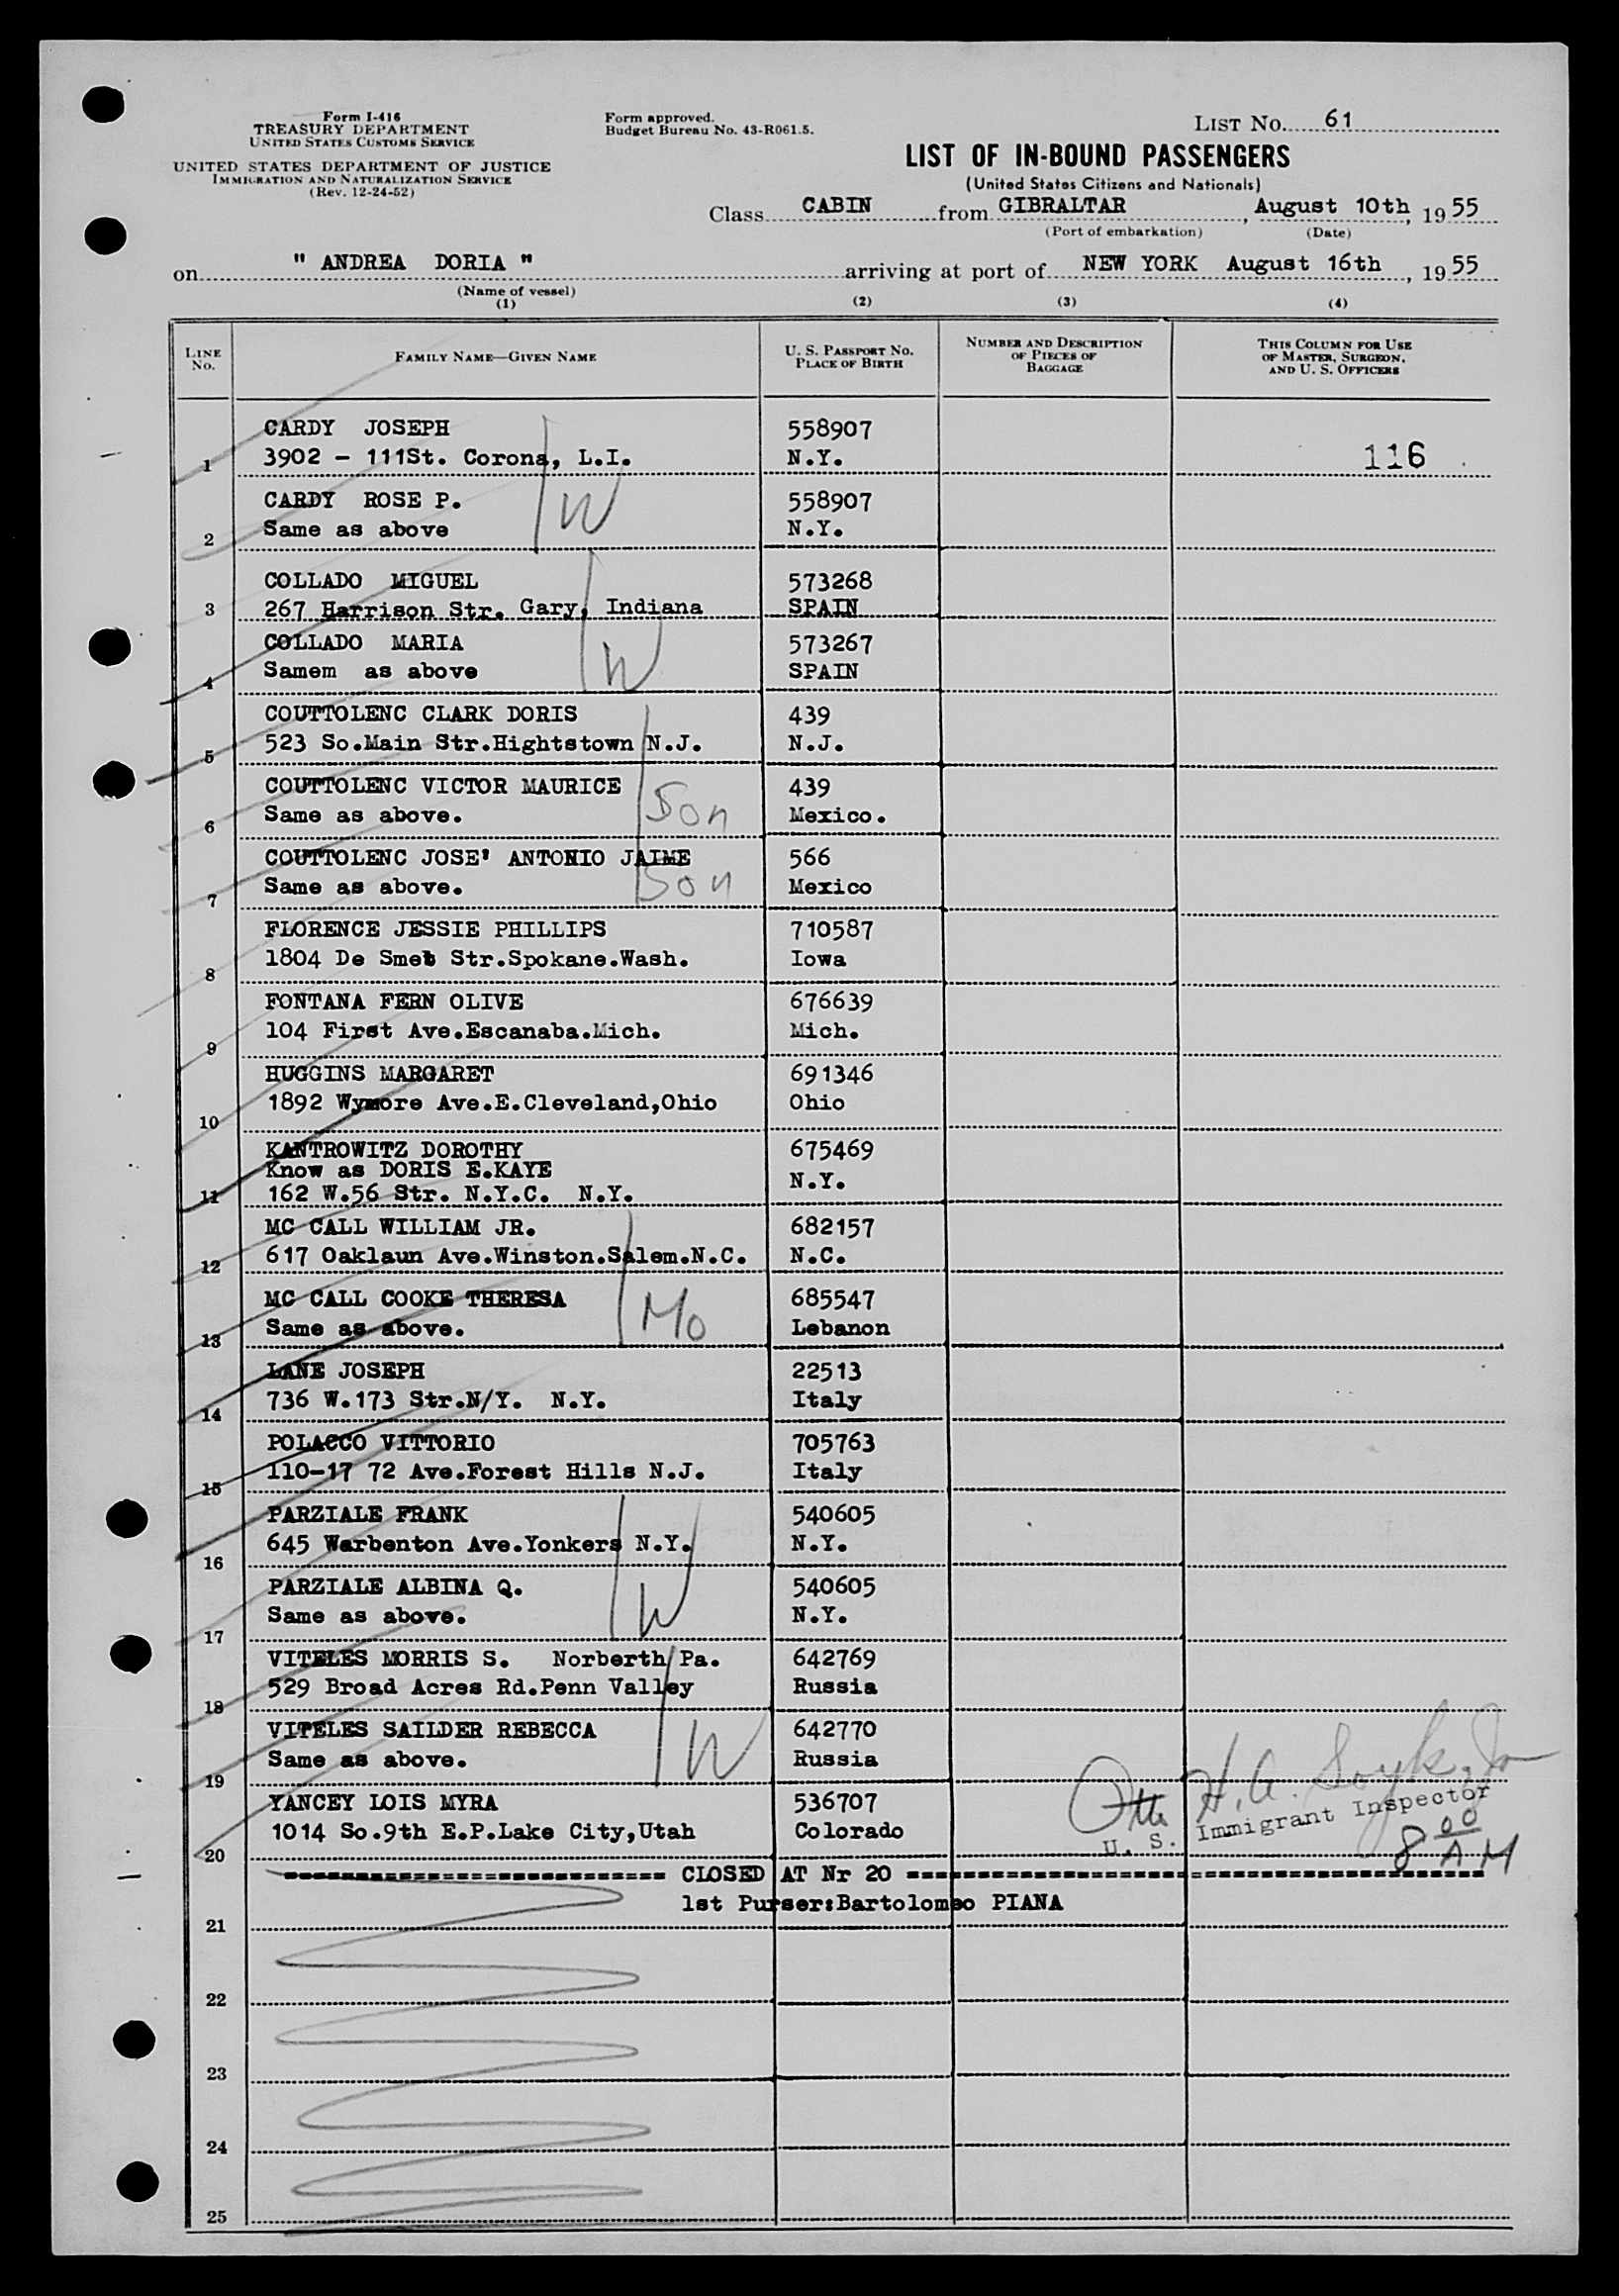 Form I-416
TREASURY DEPARTMENT
UNITED STATES CUSTOMS SERVICE
UNITED STATES DEPARTMENT OF JUSTICE
IMMIGRATION AND NATURALIZATION SERVICE
(Rev. 12-24-52)
Form approved.
Budget Bureau No. 43-R061.5.
LIST NO. 61
LIST OF IN-BOUND PASSENGERS
(United States Citizens and Nationals)
Class CABIN from GIBRALTAR, August 10th, 1955
(Port of embarkation) (Date)
on " ANDREA DORIA " arriving at port of NEW YORK August 16th, 1955
(Name of vessel)
(1) (2) (3) (4)
LINE NO.
FAMILY NAME—GIVEN NAME
U. S. PASSPORT NO.
PLACE OF BIRTH
NUMBER AND DESCRIPTION
OF PIECES OF
BAGGAGE
THIS COLUMN FOR USE
OF MASTER, SURGEON,
AND U. S. OFFICERS
CARDY JOSEPH 558907
1 3902 - 111St. Corona, L.I. N.Y. 116
CARDY ROSE P. W 558907
2 Same as above N.Y.
COLLADO MIGUEL 573268
3 267 Harrison Str. Gary, Indiana SPAIN
COLLADO MARIA W 573267
4 Samem as above SPAIN
COUTTOLENC CLARK DORIS 439
5 523 So.Main Str.Hightstown N.J. N.J.
COUTTOLENC VICTOR MAURICE Son 439
6 Same as above. Mexico.
COUTTOLENC JOSE' ANTONIO JAIME 566
7 Same as above. Son Mexico
FLORENCE JESSIE PHILLIPS 710587
8 1804 De Smet Str.Spokane.Wash. Iowa
FONTANA FERN OLIVE 676639
9 104 First Ave.Escanaba.Mich. Mich.
HUGGINS MARGARET 691346
10 1892 Wymore Ave.E.Cleveland,Ohio Ohio
KANTROWITZ DOROTHY 675469
Know as DORIS E.KAYE N.Y.
11 162 W.56 Str. N.Y.C. N.Y.
MC CALL WILLIAM JR. 682157
12 617 Oaklaun Ave.Winston.Salem.N.C. N.C.
MC CALL COOKE THERESA Mo 685547
13 Same as above. Lebanon
LANE JOSEPH 22513
14 736 W.173 Str.N/Y. N.Y. Italy
POLACCO VITTORIO 705763
15 110-17 72 Ave.Forest Hills N.J. Italy
PARZIALE FRANK 540605
16 645 Warbenton Ave.Yonkers N.Y. N.Y.
PARZIALE ALBINA Q. W 540605
17 Same as above. N.Y.
VITELES MORRIS S. Norberth Pa. 642769
18 529 Broad Acres Rd.Penn Valley Russia
VITELES SAILDER REBECCA W 642770
19 Same as above. Russia
YANCEY LOIS MYRA 536707
20 1014 So.9th E.P.Lake City,Utah Colorado
H. A.
U. S. Immigrant Inspector
8 00 AM
CLOSED AT Nr 20
1st Purser:Bartolomeo PIANA
21
22
23
24
25